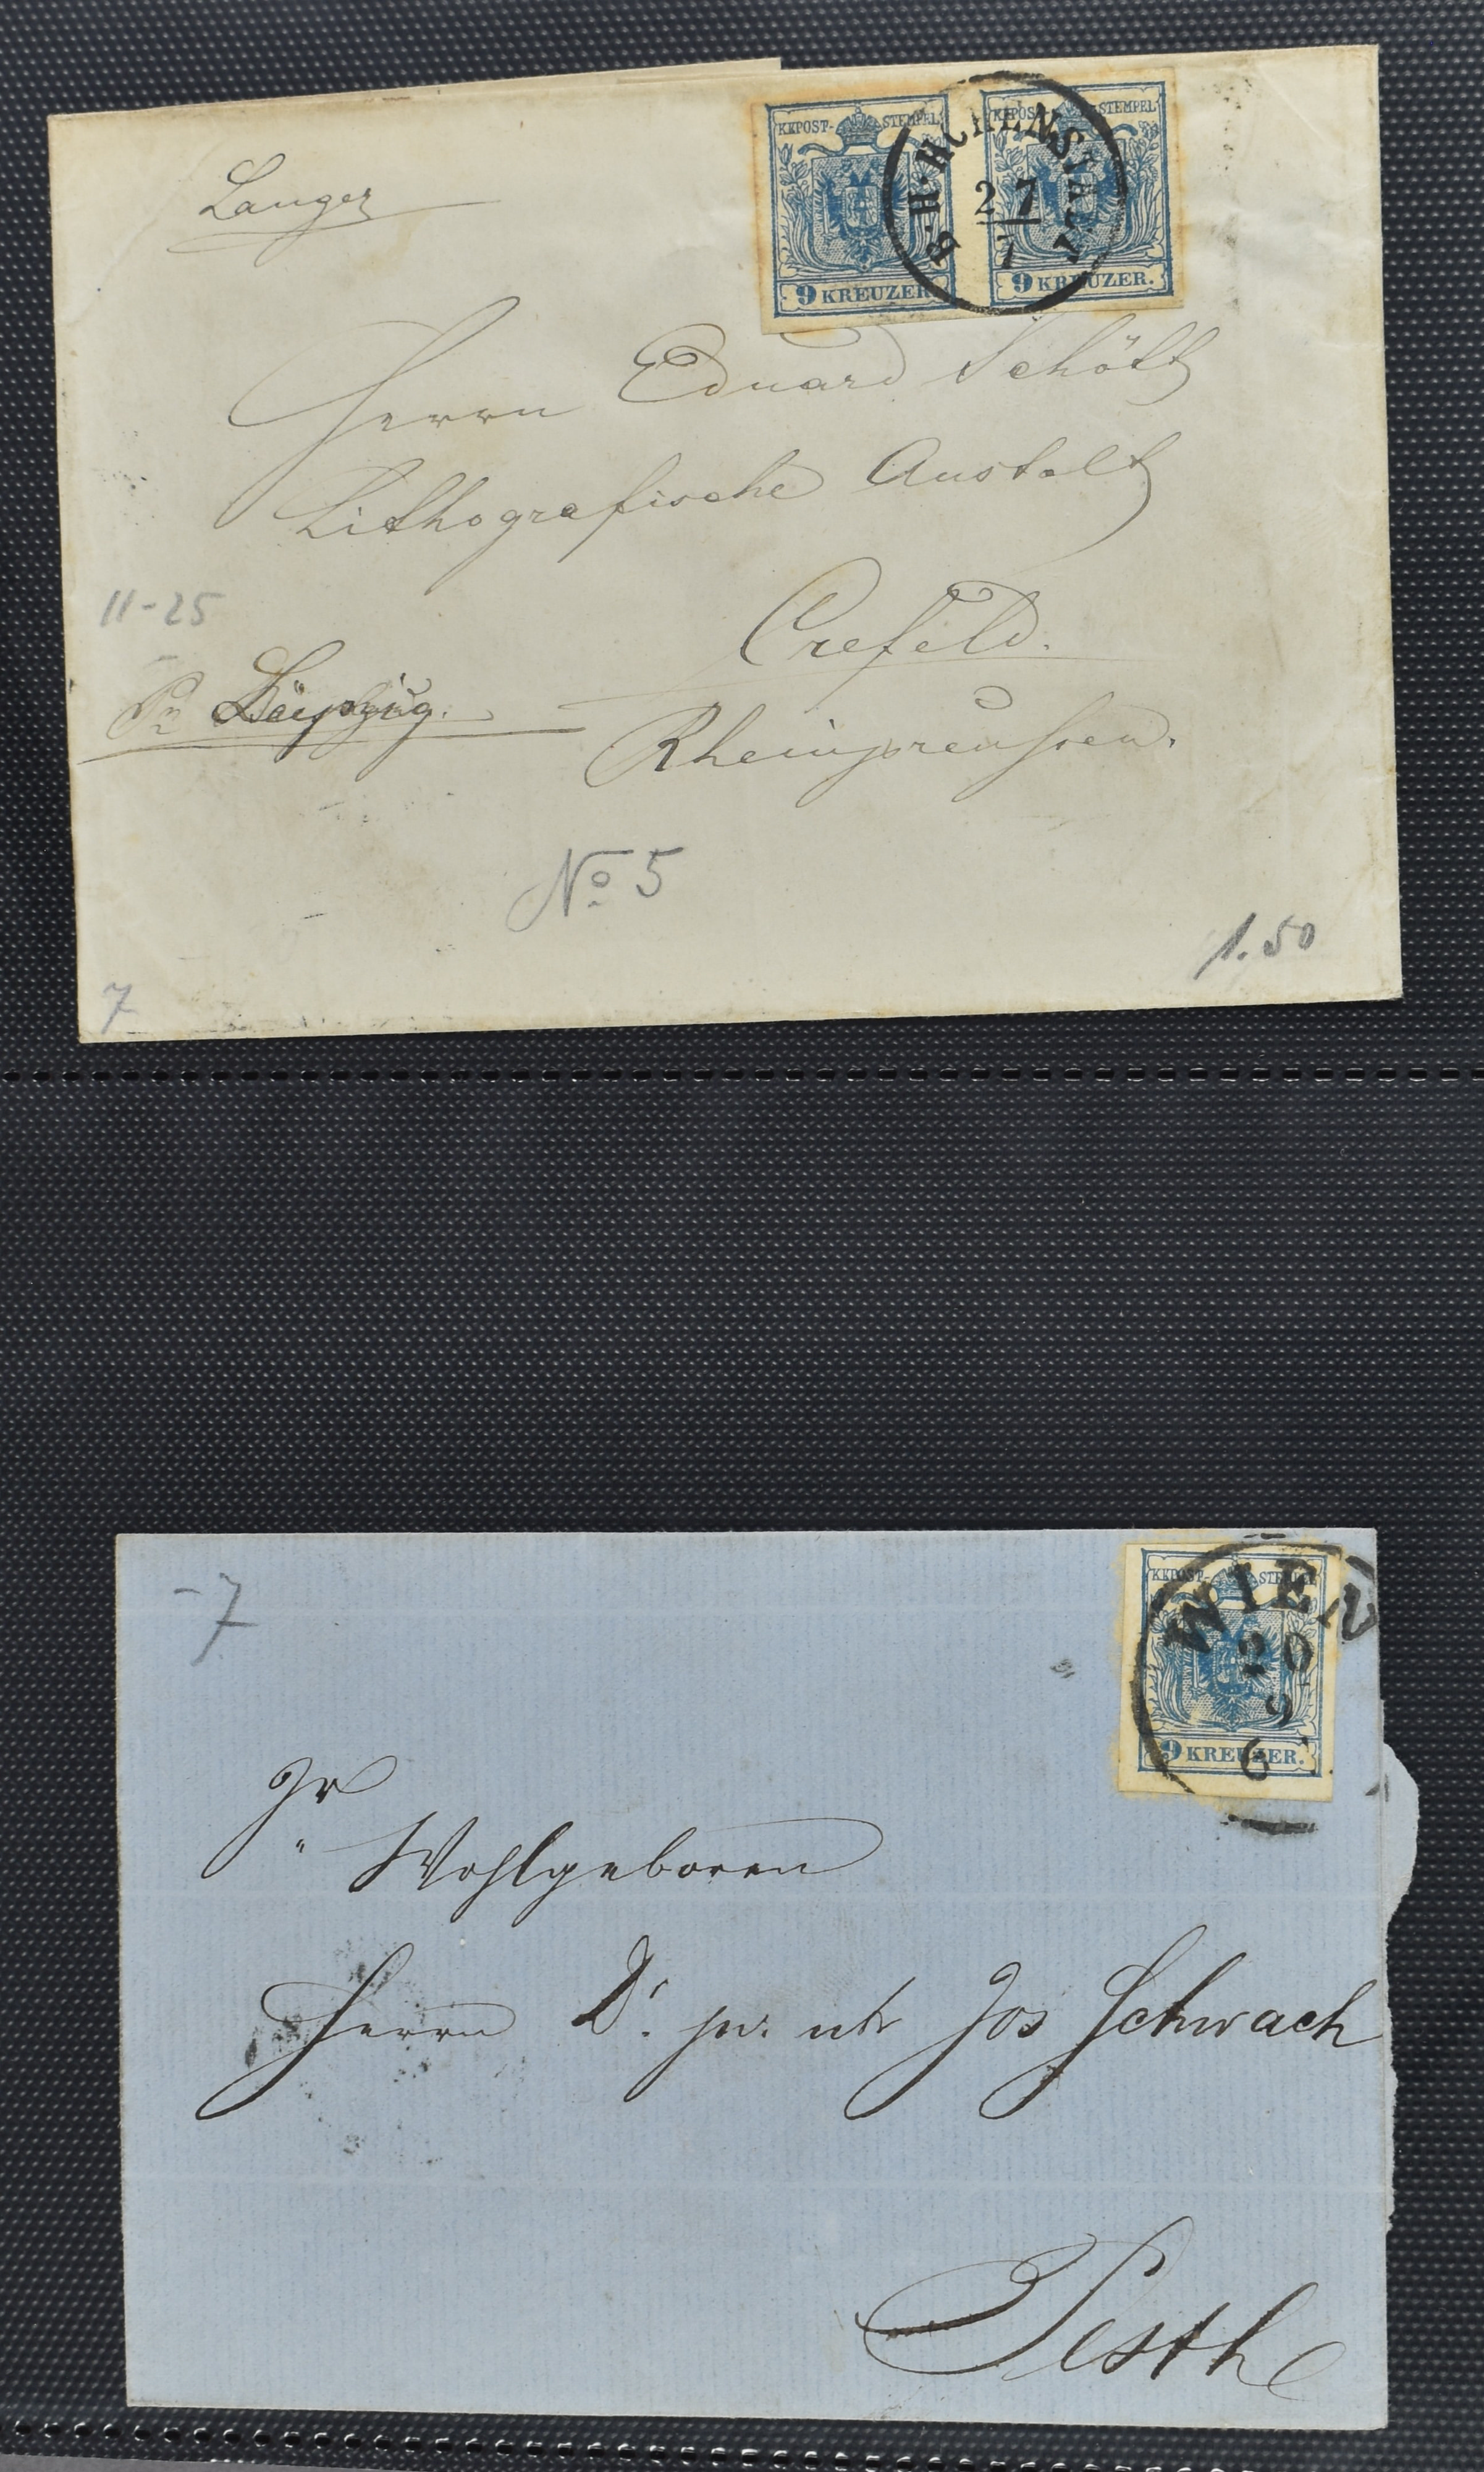 Langer
KKPOST-STEMPEL
9 KREUZER.
KKPOST-STEMPEL
9 KREUZER.
27
7
Herrn Eduard Schött
Lithografische Anstalt
Crefeld.
Rheinpreussen.
11-25
Pr Leipzig.
No 5
1.50
7
-7
KKPOST-STEMPEL
9 KREUZER.
WIEN
20
9
6
Wohlgeboren
Herrn Dr. Jos Schwach
Pesth